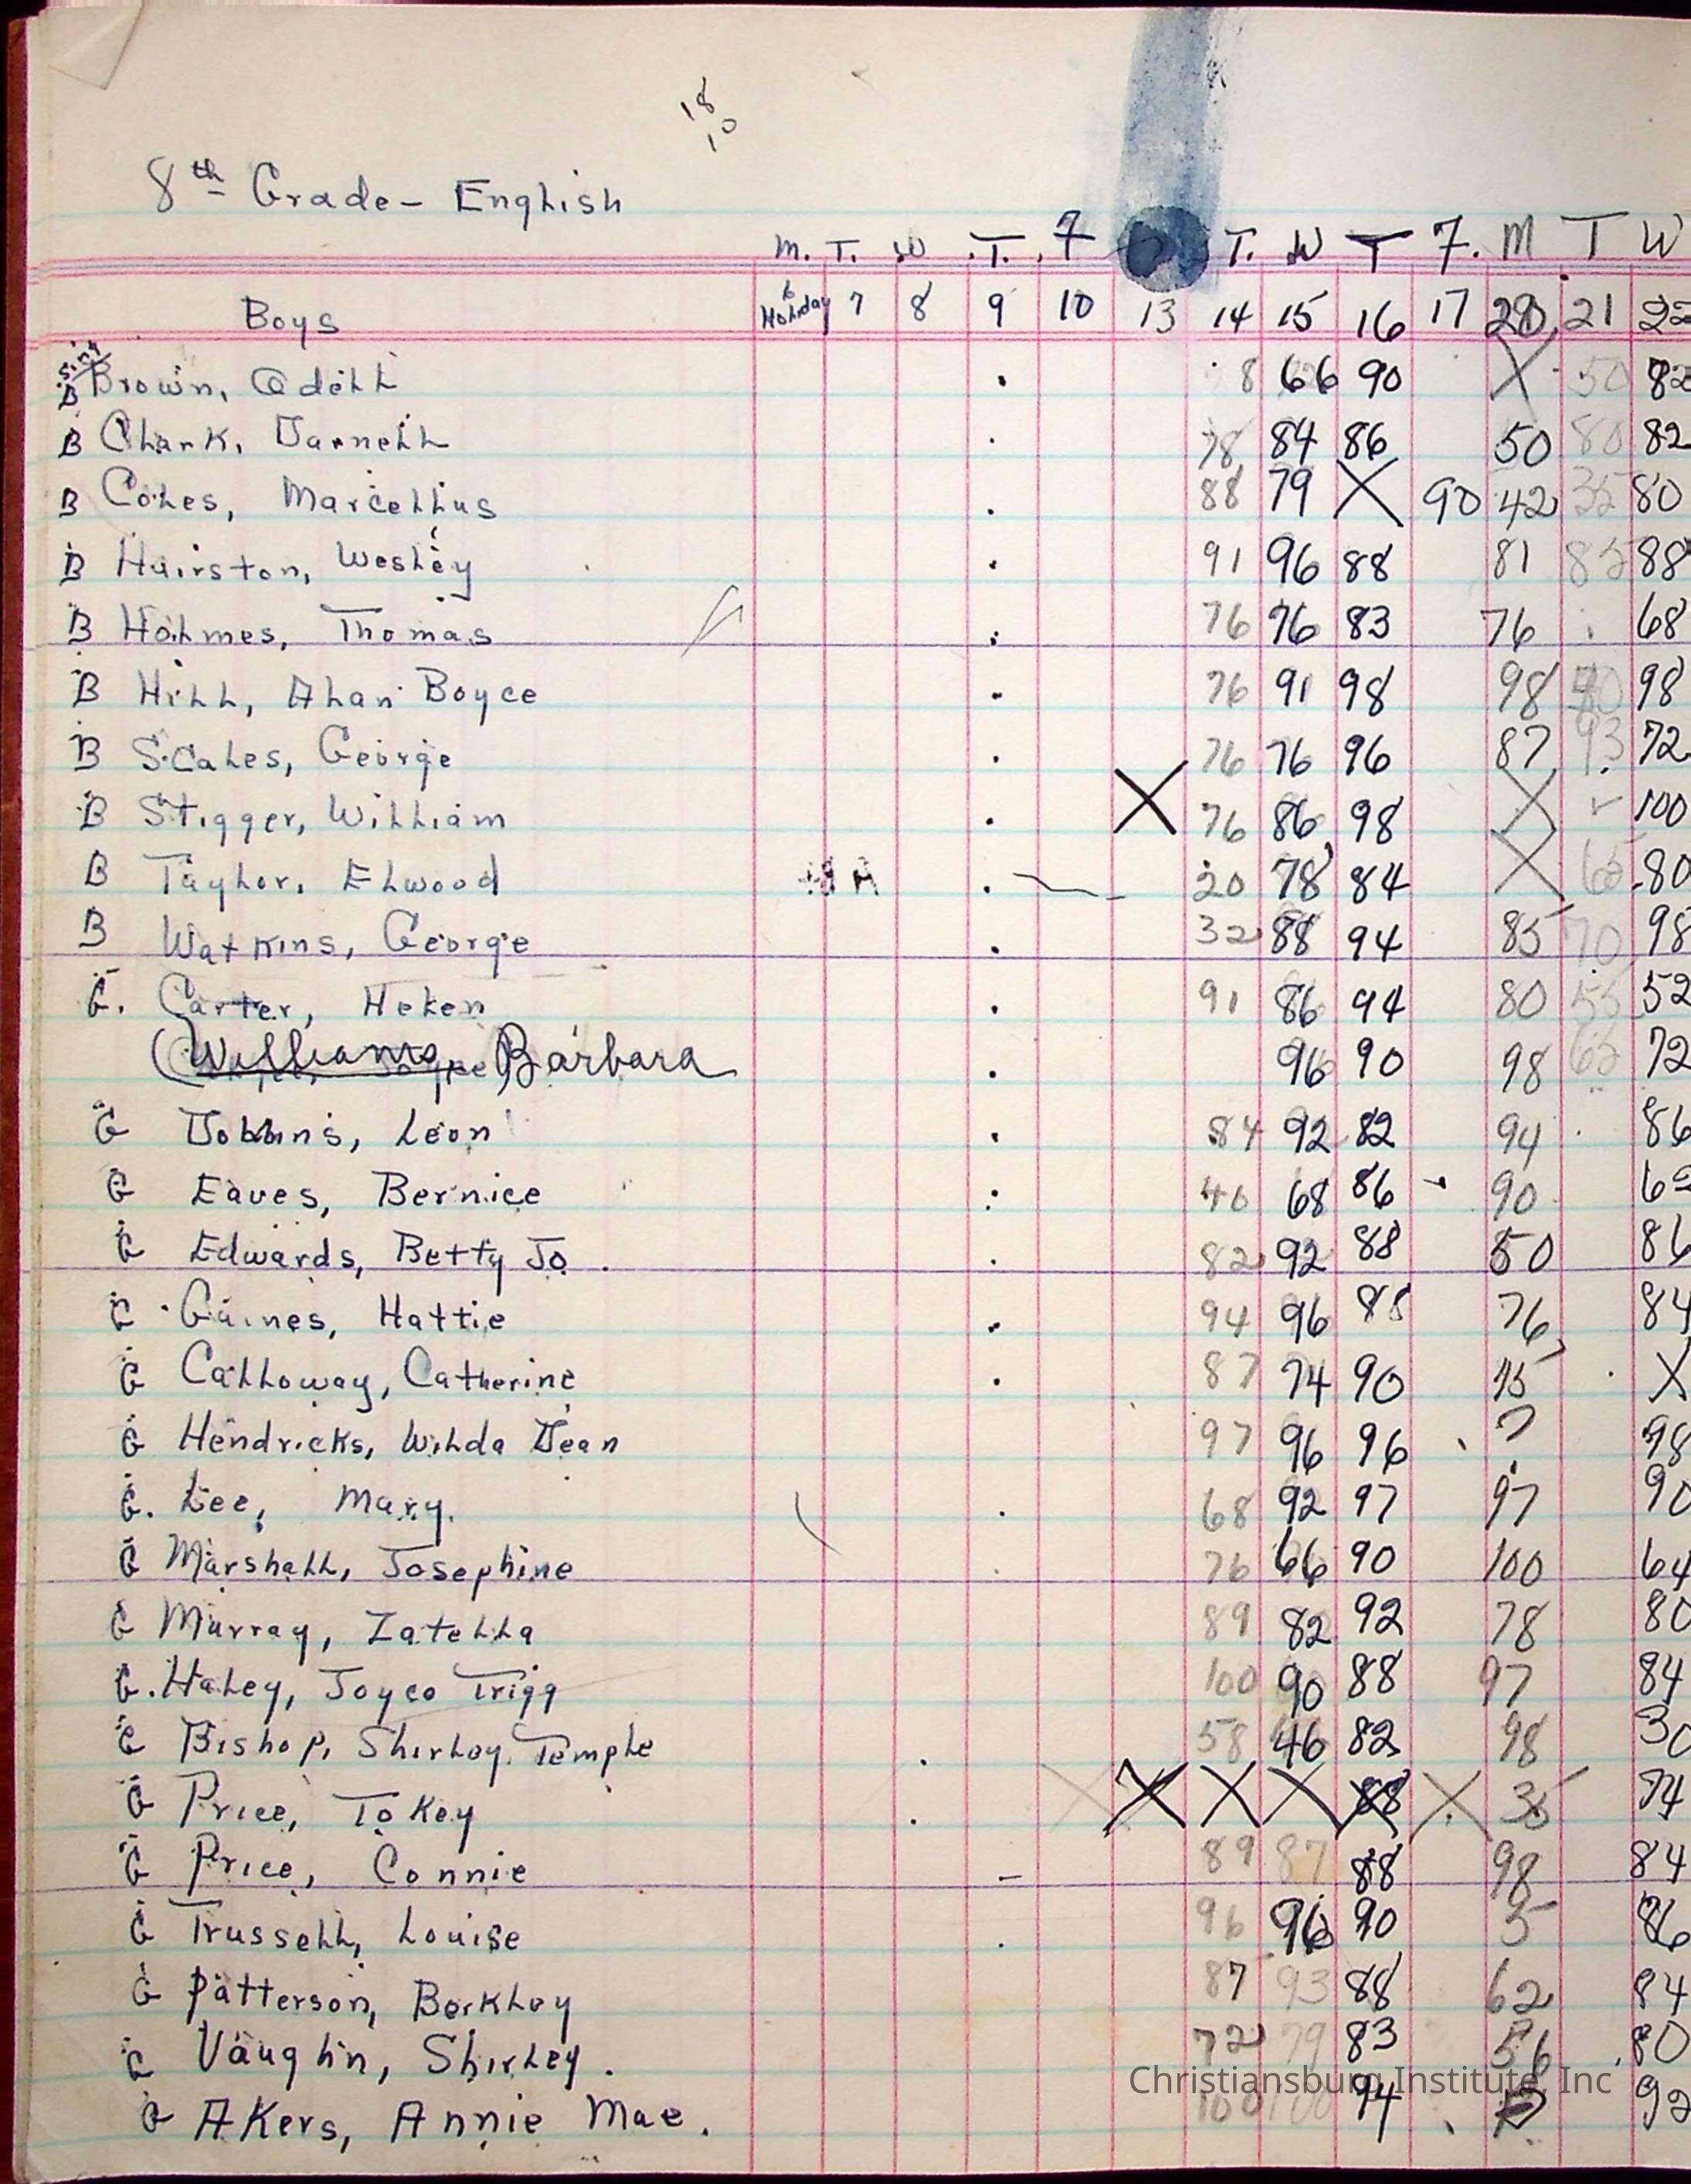 18
10
8th Grade - English
M. T. W T. F T. W T F. M T W
Boys 6 Holiday 7 8 9 10 13 14 15 16 17 20 21 22
B Brown, Odell 8 66 90 X 50 82
B Clark, Darnell 78 84 86 50 80 82
B Coles, Marcellus 88 79 X 90 42 35 80
B Hairston, Wesley 91 96 88 81 85 88
B Holmes, Thomas 76 76 83 76 68
B Hill, Alan Boyce 76 91 98 98 98
B Scales, George 76 76 96 87 93 72
B Stigger, William X 76 86 98 X 100
B Taylor, Elwood 20 78 84 X 65 80
B Watkins, George 32 88 94 85 70 98
G. Carter, Helen 91 86 94 80 55 52
(Williams, Barbara 96 90 98 72
G Dobbins, Leon 84 92 82 94 86
G Eaves, Bernice 40 68 86 90
G Edwards, Betty Jo. 82 92 88 50 86
G Gaines, Hattie 94 96 88 76 84
G Calloway, Catherine 87 74 90 X
G Hendricks, Wilda Dean 97 96 96 98
G. Lee, Mary. 68 92 97 97 90
G Marshall, Josephine 76 66 90 100 64
G Murray, Zatella 89 82 92 78 80
G. Haley, Joyce Trigg 100 90 88 97 84
G Bishop, Shirley Temple 58 46 82 98 30
G Price, Tokey X X X X X 35 74
G Price, Connie 89 87 88 98 84
G Trussell, Louise 96 96 90 5 86
G Patterson, Berkley 87 93 88 62 84
G Vaughn, Shirley. 72 79 83 56 80
Christiansburg Institute, Inc
G Akers, Annie Mae. 100 100 94 92